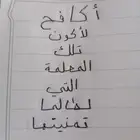 أكافح
لأكون
تلك
المعلمة
التي
لطالما
تمنيتها